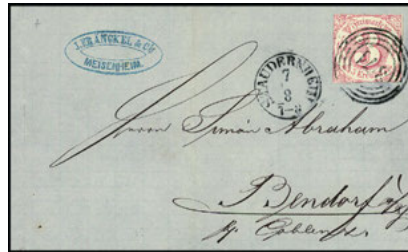 J. FRANCKEL & Co
MEISENHEIM.
STAUDERNHEIM
7
8
7-8
Herrn Simon Abraham
Bendorf a/
Coblenz